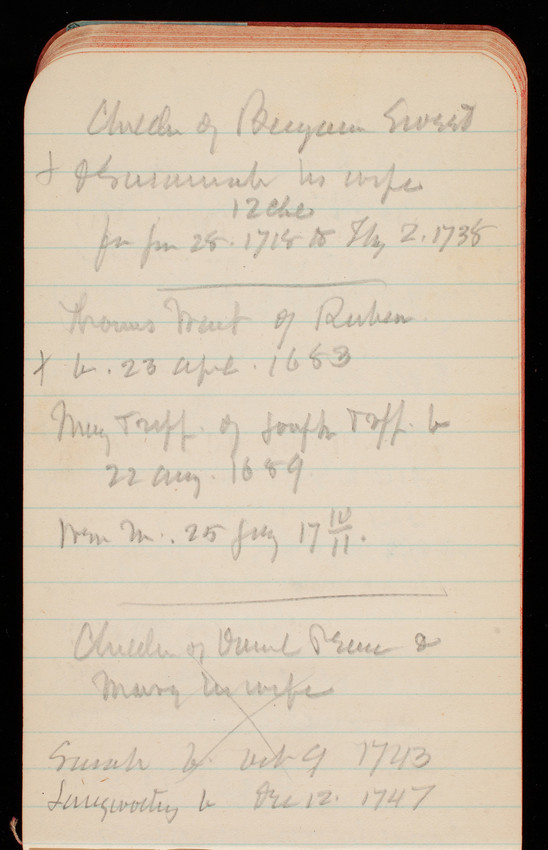 Children of Benjamin Sweet
+ & Susannah his wife
12 che
fm Jan 28. 1718 to Fby 2. 1738
Thomas Wait of Reuben
+ b. 23 apl. 1683
Mary Tripp. of Joseph Tripp. b
22 aug. 1689
Wem M. 25 Jny 17 10/11.
Children of Daniel &
Mary his wife
Sarah b. oct 9 1743
Langworthy b Dec 12. 1747